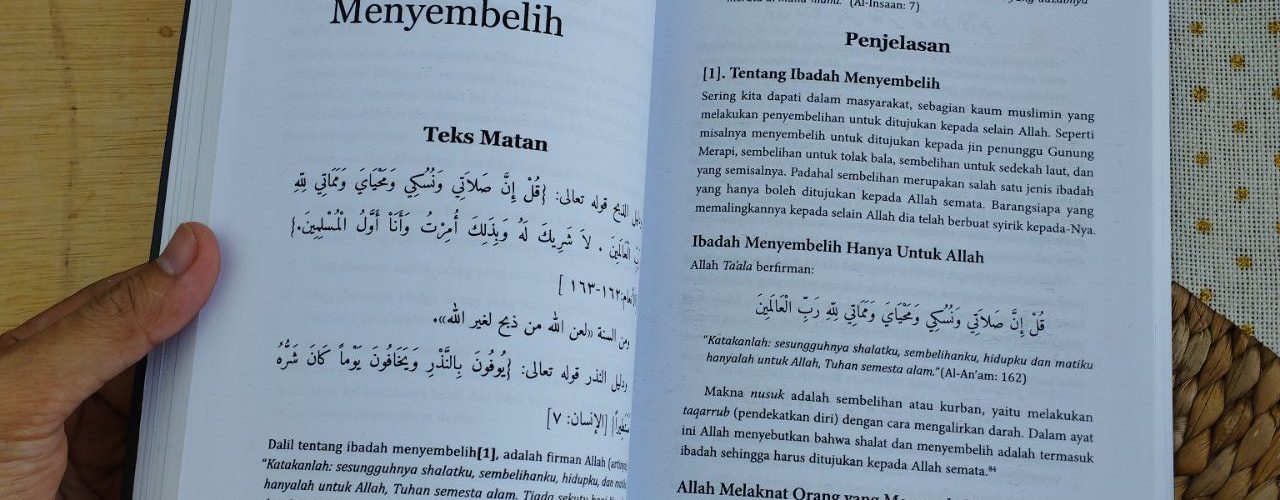 Menyembelih
Teks Matan
ودليل الذبح قوله تعالى: {قُلْ إِنَّ صَلَاتِي وَنُسُكِي وَمَحْيَايَ وَمَمَاتِي لِلَّهِ
الْعَالَمِينَ . لاَ شَرِيكَ لَهُ وَبِذَلِكَ أُمِرْتُ وَأَنَاْ أَوَّلُ الْمُسْلِمِينَ.{
١٦٢-١٦٣ ]
ومن السنة «لعن الله من ذبح لغير الله».
ودليل النذر قوله تعالى: {يُوفُونَ بِالنَّذْرِ وَيَخَافُونَ يَوْماً كَانَ شَرُّهُ
[الإنسان: ٧]
Dalil tentang ibadah menyembelih[1], adalah firman Allah
“Katakanlah: sesungguhnya shalatku, sembelihanku, hidupku, dan
hanyalah untuk Allah, Tuhan semesta alam. Tiada sekutu
(Al-Insaan: 7)
Penjelasan
[1]. Tentang Ibadah Menyembelih
Sering kita dapati dalam masyarakat, sebagian kaum muslimin yang
melakukan penyembelihan untuk ditujukan kepada selain Allah. Seperti
misalnya menyembelih untuk ditujukan kepada jin penunggu Gunung
Merapi, sembelihan untuk tolak bala, sembelihan untuk sedekah laut, dan
yang semisalnya. Padahal sembelihan merupakan salah satu jenis ibadah
yang hanya boleh ditujukan kepada Allah semata. Barangsiapa yang
memalingkannya kepada selain Allah dia telah berbuat syirik kepada-Nya.
Ibadah Menyembelih Hanya Untuk Allah
Allah Ta'ala berfirman:
قُلْ إِنَّ صَلَاتِي وَنُسُكِي وَمَحْيَايَ وَمَمَاتِي لِلَّهِ رَبِّ الْعَالَمِينَ
“Katakanlah: sesungguhnya shalatku, sembelihanku, hidupku dan matiku
hanyalah untuk Allah, Tuhan semesta alam.”(Al-An'am: 162)
Makna nusuk adalah sembelihan atau kurban, yaitu melakukan
taqarrub (pendekatkan diri) dengan cara mengalirkan darah. Dalam ayat
ini Allah menyebutkan bahwa shalat dan menyembelih adalah termasuk
ibadah sehingga harus ditujukan kepada Allah semata.⁸⁴
Allah Melaknat Orang yang